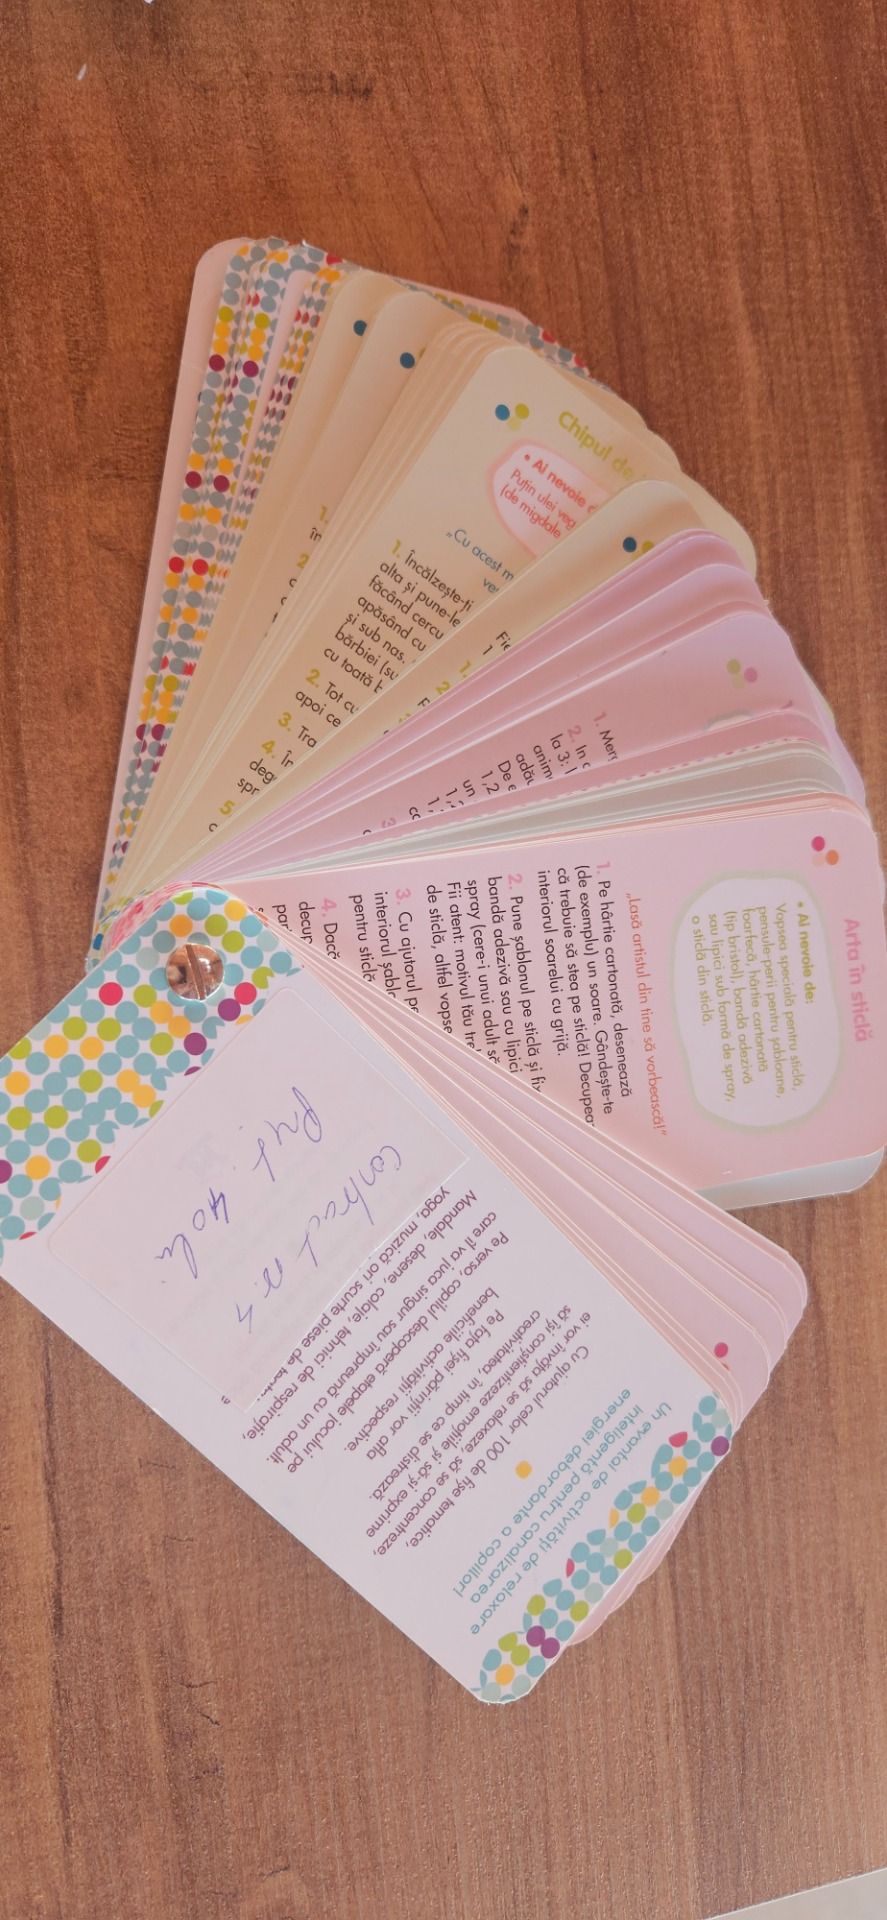 Chipul de
• Ai nevoie d
Puțin ulei veg
(de migdale
„Cu acest m
1. Încălzește-ți
alta și pune-le
făcând cercu
apăsând cu
și sub nas.
bărbiei (su
cu toată b
2. Tot cu
apoi ce
3. Tra
4. Îr
deg
spr
5.
Fie
1. Mers
2. În c
la 3: 1
anim
adău
De e
1,2
un
Arta în sticlă
• Ai nevoie de:
Vopsea specială pentru sticlă,
pensule-perii pentru șabloane,
foarfecă, hârtie cartonată
(tip bristol), bandă adezivă
sau lipici sub formă de spray,
o sticlă din sticlă.
„Lasă artistul din tine să vorbească!”
1. Pe hârtie cartonată, desenează
(de exemplu) un soare. Gândește-te
că trebuie să stea pe sticlă! Decupea
interiorul soarelui cu grijă.
2. Pune șablonul pe sticlă și fix
bandă adezivă sau cu lipici
spray (cere-i unui adult să
Fii atent: motivul tău tre
de sticlă, altfel vopse
3. Cu ajutorul pe
interiorul șablo
pentru sticlă
4. Dacă
decup
pari
Un evantai de activități de relaxare
inteligentă pentru canalizarea
energiei debordante a copiilor!
Cu ajutorul celor 100 de fișe tematice,
ei vor învăța să se relaxeze, să se concentreze,
să își conștientizeze emoțiile și să-și exprime
creativitatea, în timp ce se distrează.
Pe fața fișei părinții vor afla
beneficiile activității respective.
Pe verso, copilul descoperă etapele jocului pe
care îl va juca singur sau împreună cu un adult.
Mandale, desene, colaje, tehnici de respirație,
yoga, muzică ori scurte piese de
contract nr. 4
Preț 40 lei